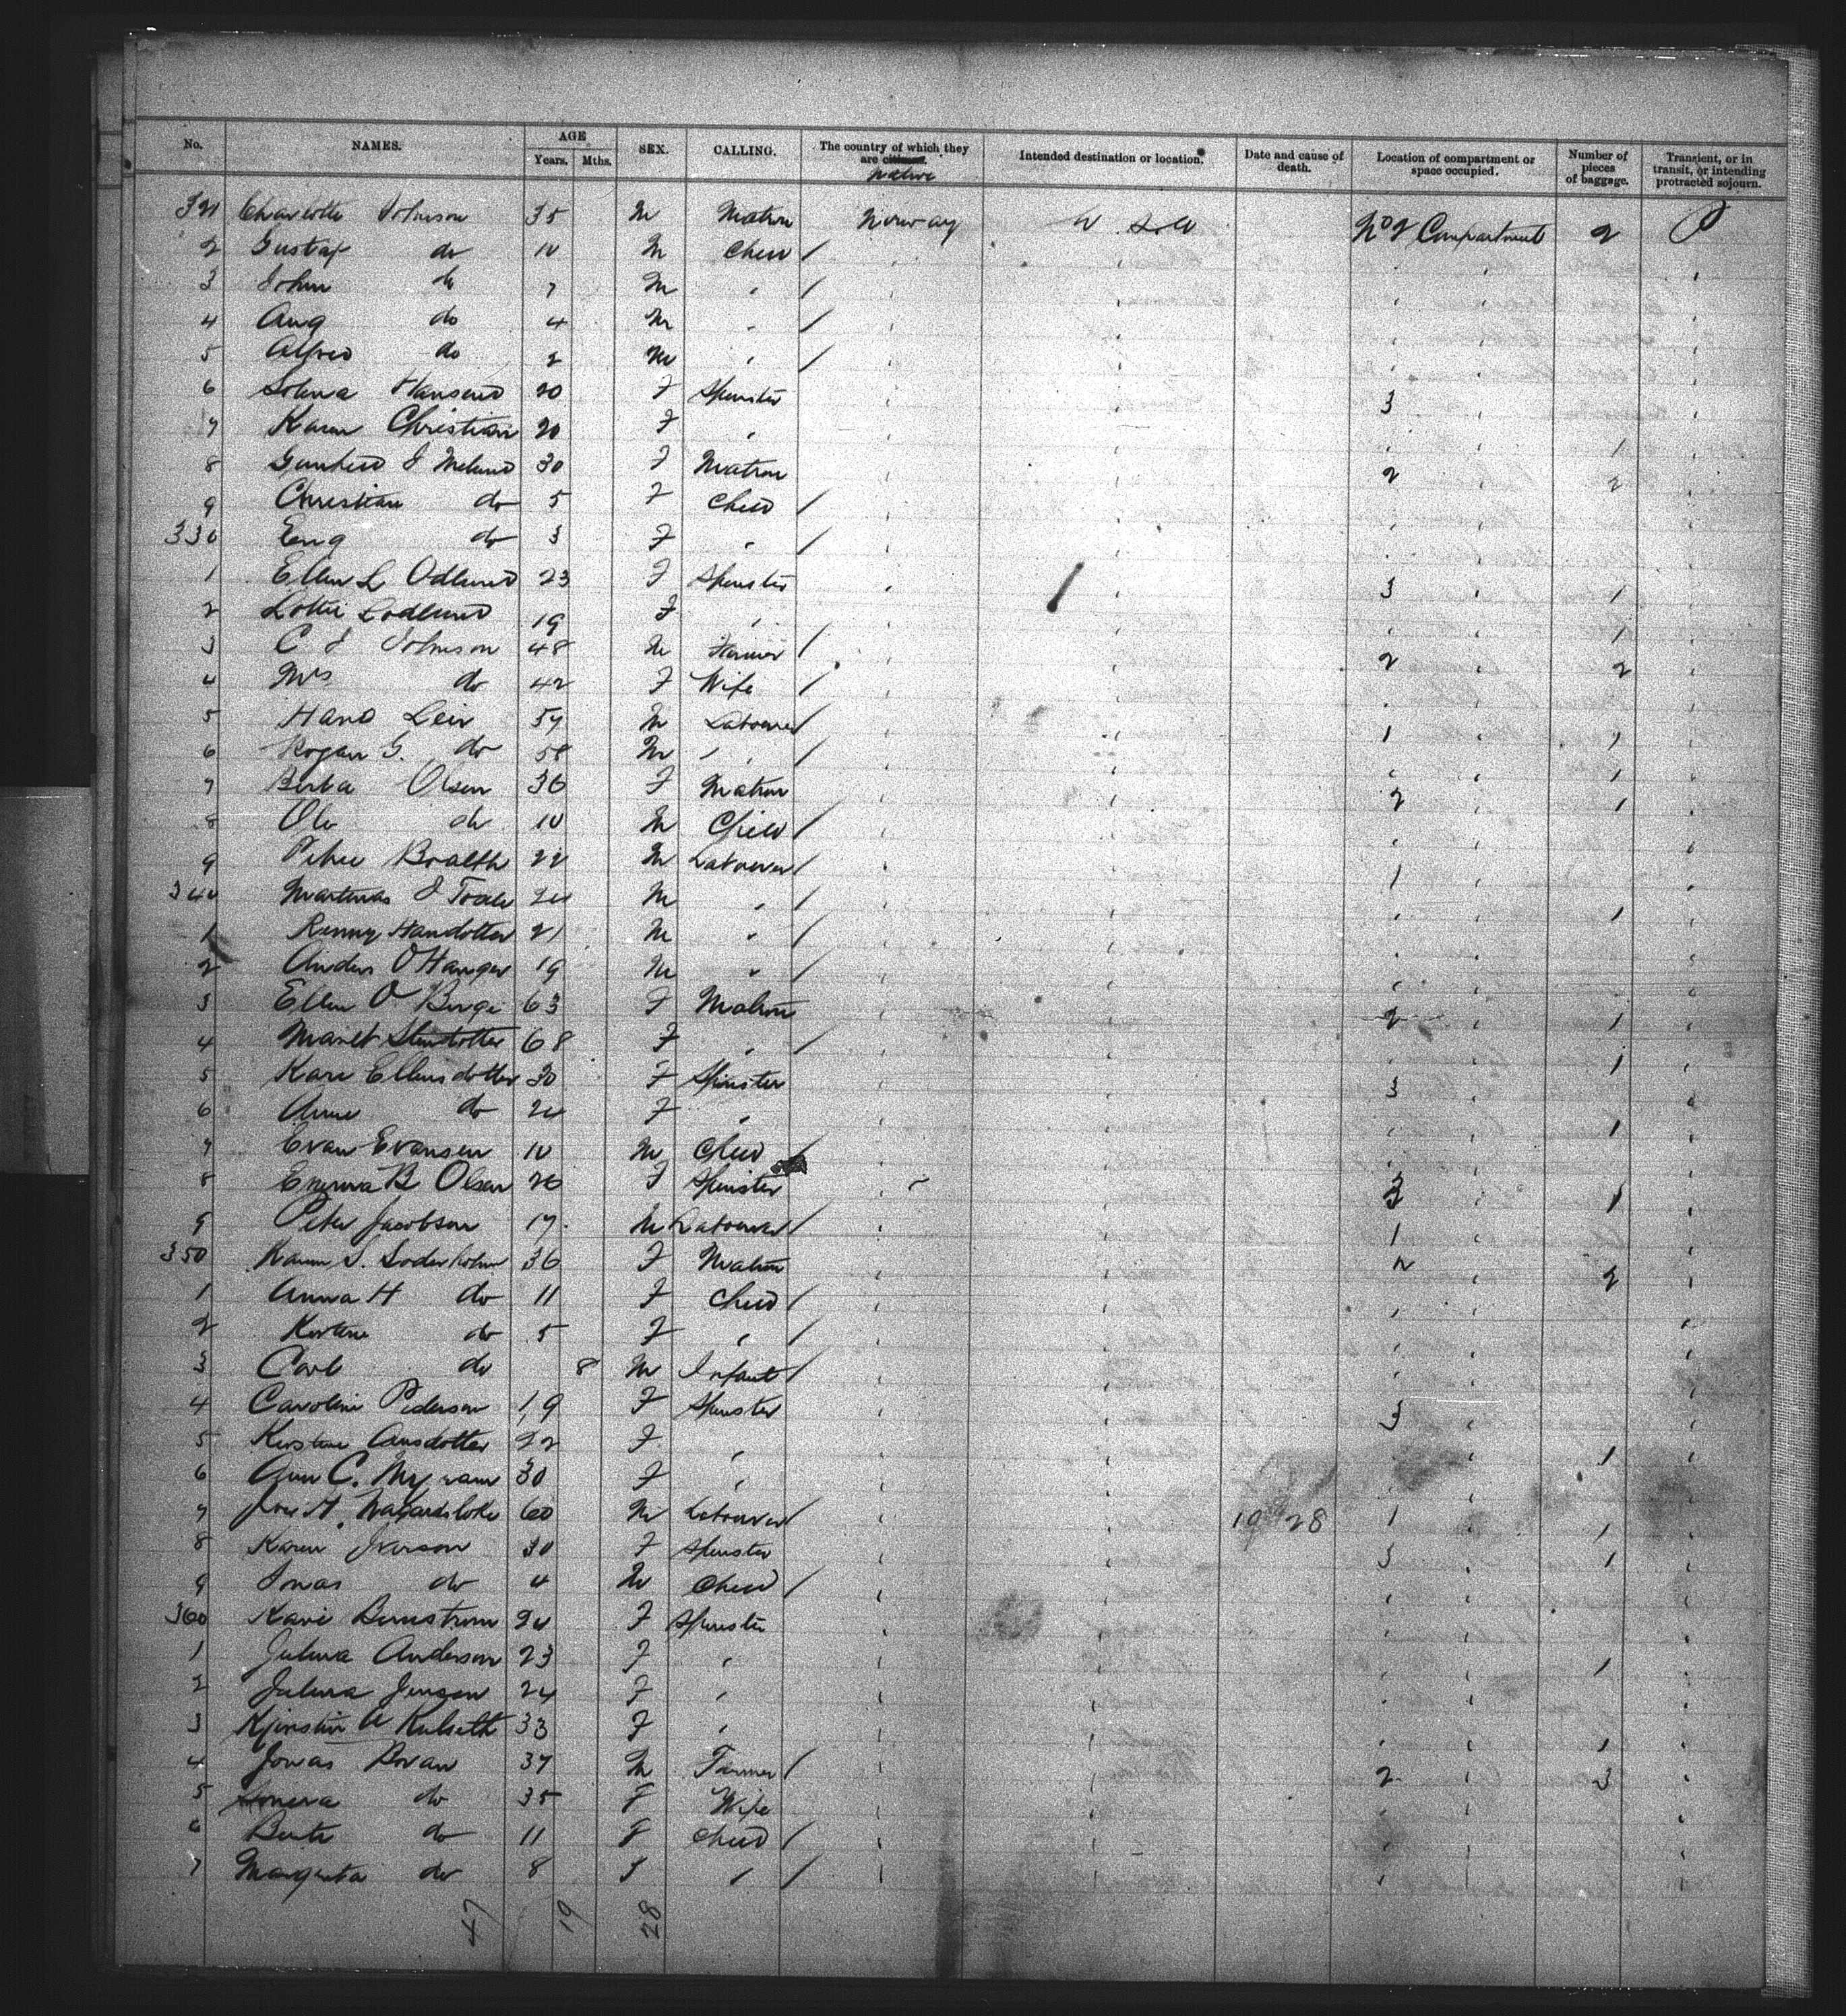 No. NAMES. AGE Years. Mths. SEX. CALLING. The country of which they are citizens. native Intended destination or location. Date and cause of death. Location of compartment or space occupied. Number of pieces of baggage. Transient, or in transit, or intending protracted sojourn.
321 Charlotte Johnson 35 M Matron Norway No 2 Compartment 2 P
2 Gustaf do 10 M Child /
3 John do 7 M " /
4 Aug do 4 M " /
5 Alfred do 2 M " /
6 Hansend 20 F Spinster 3
7 Karen Christian 20 F " 1
8 30 F Matron 2 2
9 Christian do 5 F Child /
330 Eng do 3 F " /
1 Ellen L Odlund 23 F Spinster 3 1
2 Lottie Lodlund 19 F " 1
3 C J Johnson 48 M Farmer / 2 2
4 Mrs do 42 F Wife /
5 Hand Leir 57 M Labourer / 1 1
6 G. do 58 M " / 1
7 Berta Olsen 36 F Matron 2 1
8 Ole do 10 M Child /
9 22 M Labourer / 1
340 Martinas J 20 M " / 1
1 Handotter 21 M " /
2 Anders O Hanger 19 M " /
3 Ellen O Berge 63 F Matron 2 1
4 Marit Stendotter 68 F " / 1
5 Kari Ellensdotter 30 F Spinster 3
6 Anne do 20 F " 1
7 Evan Evansen 10 M Child /
8 Emma B Olsen 26 F Spinster 3 1
9 Peter Jacobson 17 M Labourer / 1
350 Karen S. Soderholm 36 F Matron 2 2
1 Anna H do 11 F Child /
2 Kirstine do 5 F " /
3 Carl do 8 M Infant /
4 Caroline Pederson 19 F Spinster 3
5 Kirstine Ansdotter 22 F " 1
6 Ann C. Myrann 30 F "
7 60 M Labourer 10 28 1 1
8 Karen Iverson 30 F Spinster 3 1
9 Jonas do 4 M Child /
360 Kari 20 F Spinster
1 Julina Anderson 23 F " 1
2 Julina Jenson 24 F "
3 Kjirstin A Kulseth 33 F " 1
4 Jonas Bovan 37 M Farmer / 2 3
5 do 35 F Wife
6 Berte do 11 F Child /
7 Margreta do 8 F " /
47 19 28